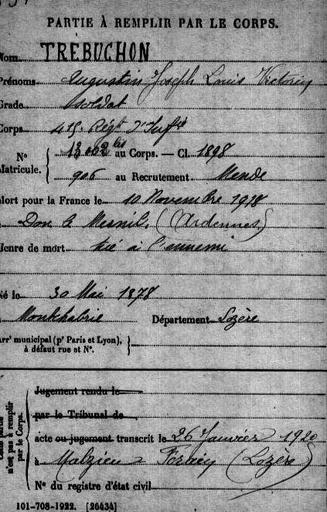 PARTIE À REMPLIR PAR LE CORPS.
Nom TRÉBUCHON
Prénoms Augustin Joseph Louis Victorin
Grade Soldat
Corps 415e Régt d'Infie
N° Matricule. 13002 bis au Corps. — Cl. 1898
906 au Recrutement Mende
Mort pour la France le 10 Novembre 1918
à Dom le Mesnil, (Ardennes)
Genre de mort tué à l'ennemi
Né le 30 Mai 1878
à Montchabrie Département Lozère
Arrt municipal (pr Paris et Lyon), à défaut rue et N°.
Cette partie n'est pas à remplir par le Corps.
Jugement rendu le
par le Tribunal de
acte ou jugement transcrit le 26 Janvier 1920
à Malzieu Forain (Lozère)
N° du registre d'état civil
101-708-1922. [26434]